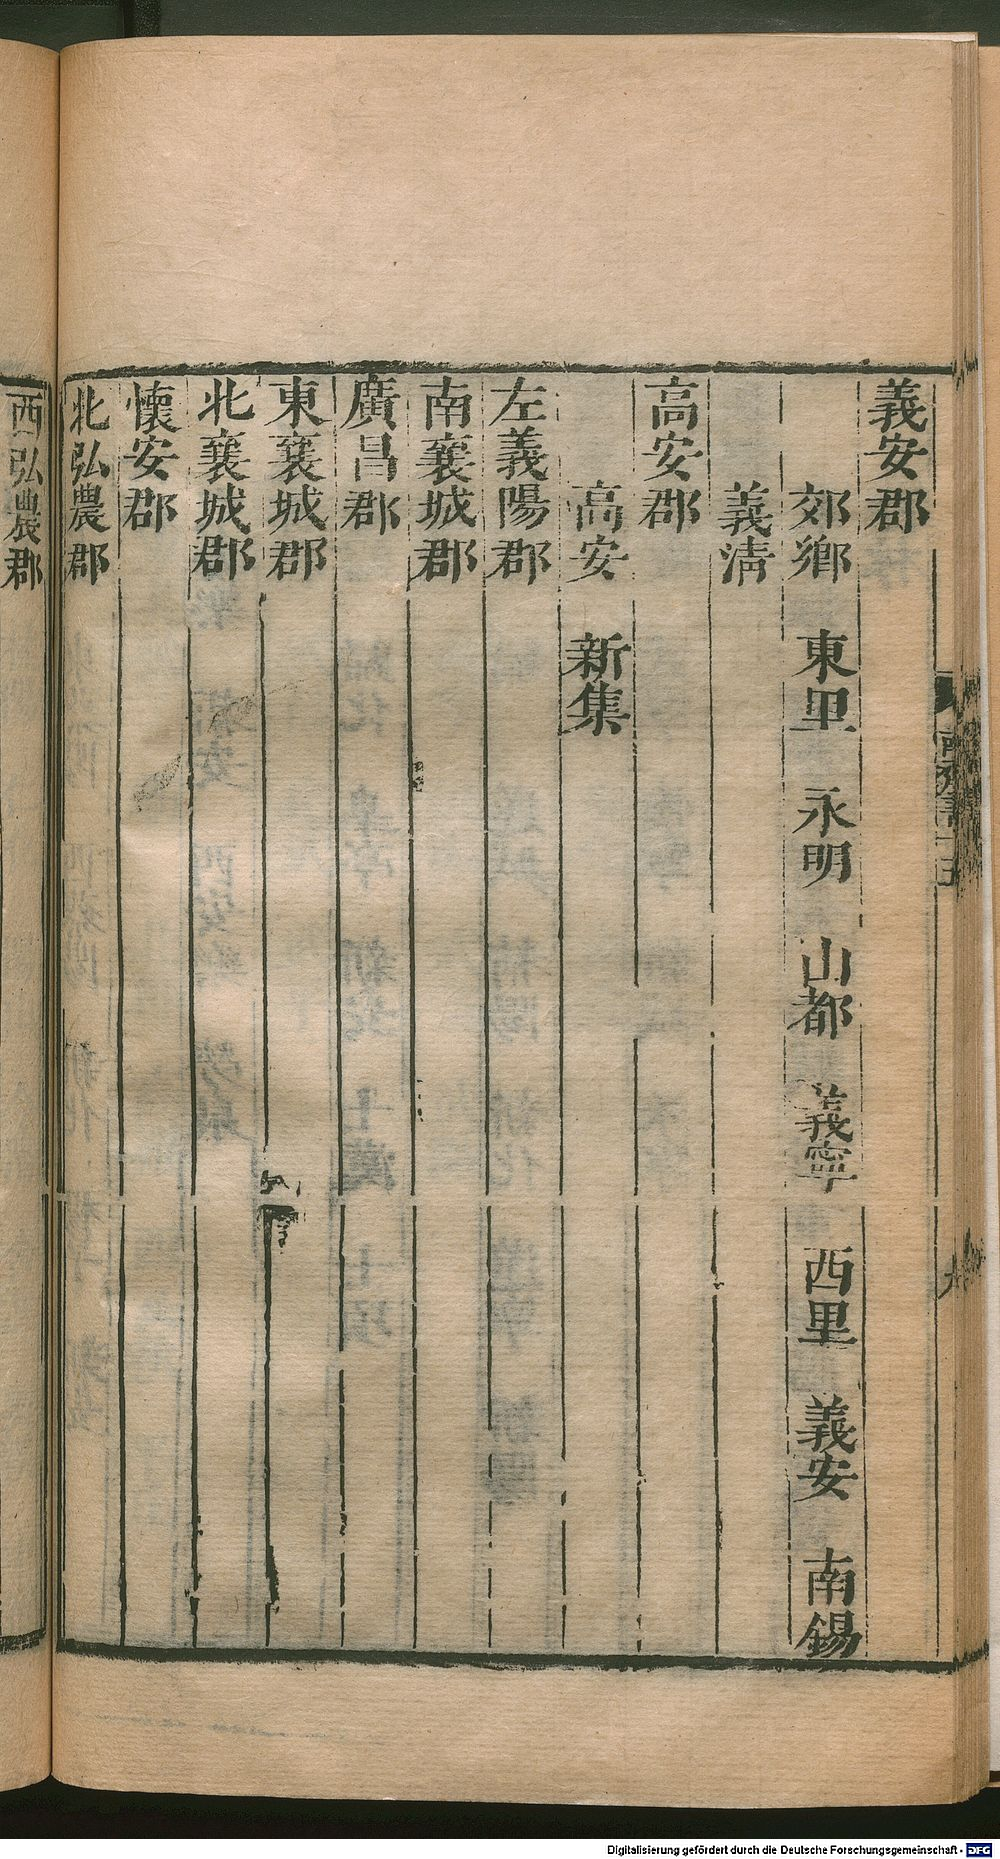 義安郡
郊鄉 東里 永明 山都 義寧 西里 義安 南錫
義清
高安郡
高安 新集
左義陽郡
南襄城郡
廣昌郡
東襄城郡
北襄城郡
懷安郡
北弘農郡
西弘農郡
Digitalisierung gefördert durch die Deutsche Forschungsgemeinschaft - DFG